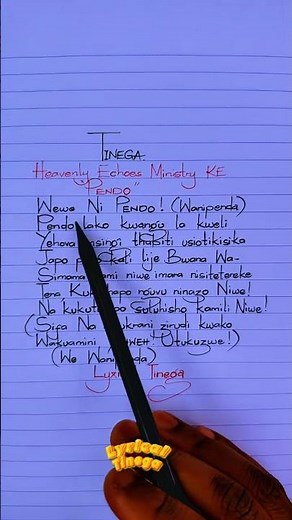 TINEGA
Heavenly Echoes Ministry KE
"PENDO"
Wewe Ni PENDO! (Wanipenda)
Pendo lako kwangu la kweli
Yehova thabiti usiotikisika
Japo kali lije Bwana Wa-
Simama nami niwe imara nisitetereke
Tena nguvu ninazo Niwe!
Na suluhisho kamili Niwe!
(Sifa Na zirudi kwako
Wakuamini Utukuzwe!)
(We
Tinega
Lyrical
Tinega